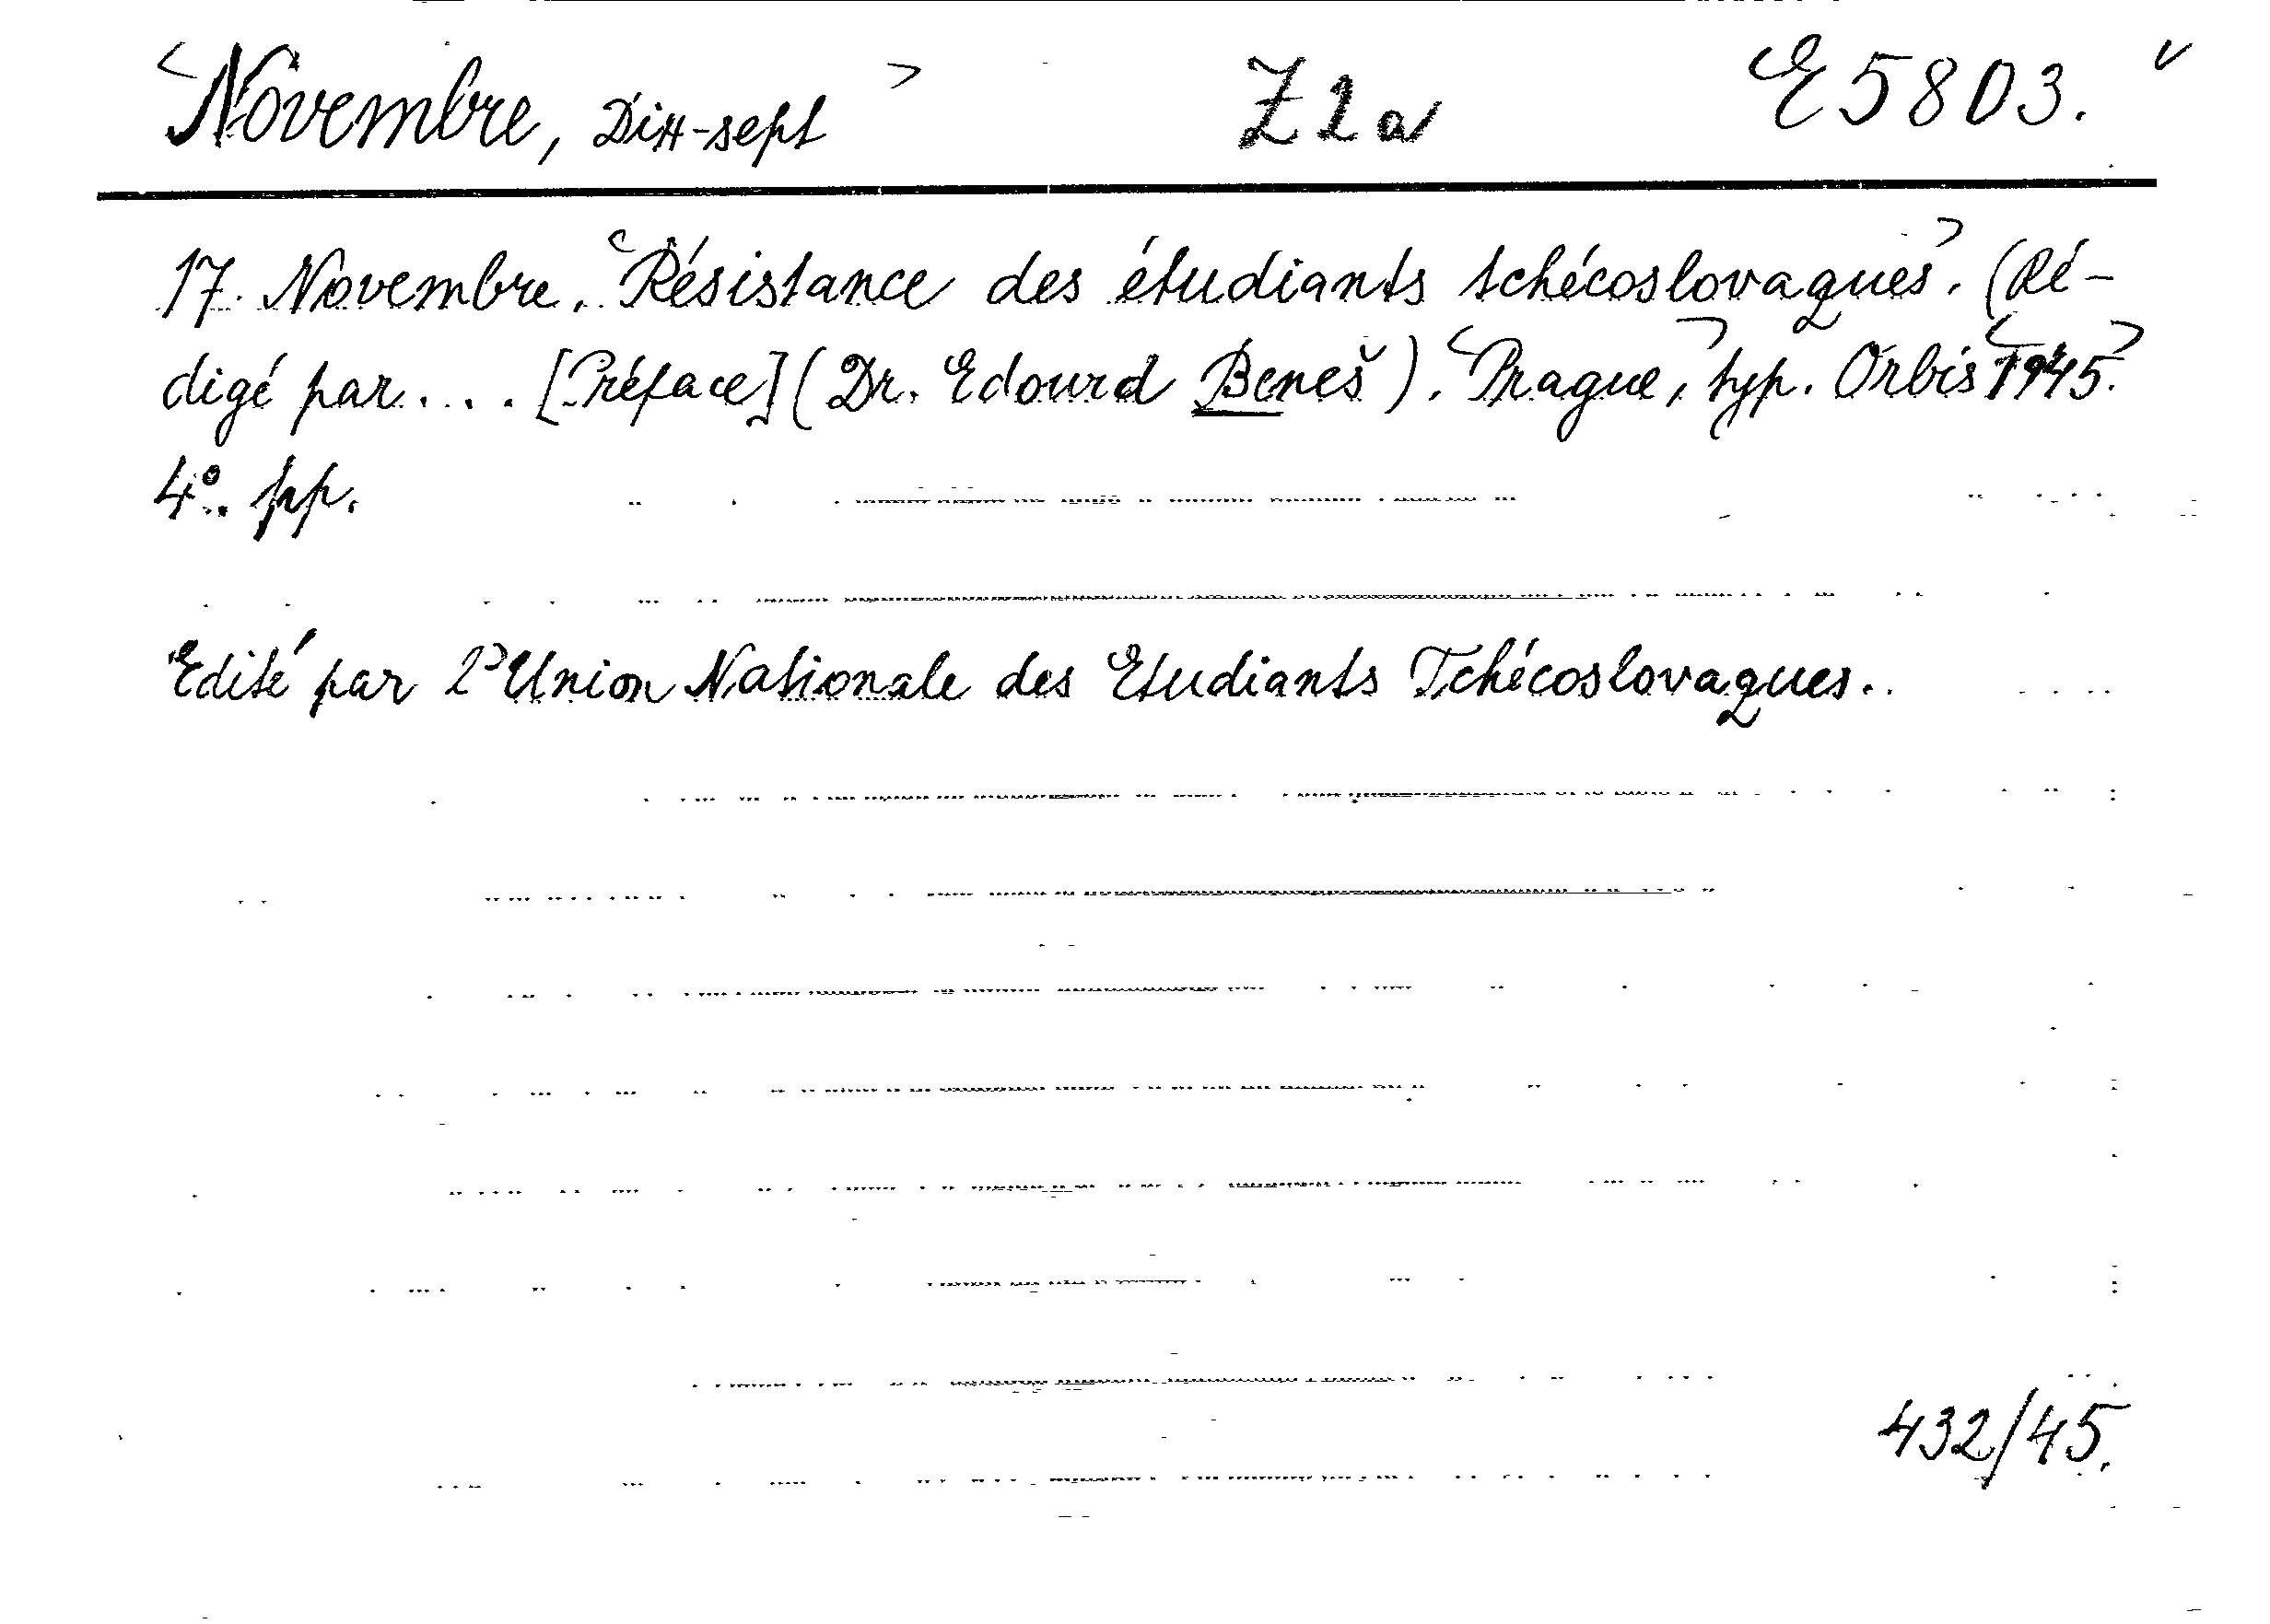 <Novembre, Dix-sept> Z 2 a E 5803. v
17. Novembre. <Résistance des étudiants tchécoslovaques>. (Ré-
digé par.... [Préface] (Dr. Edouard Beneš). <Prague,> typ. Orbis <1945.>
4°. pp.
Edité par l'Union Nationale des Etudiants Tchécoslovaques.
432/45.